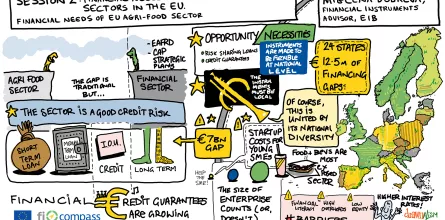 SECTORS IN THE EU.
FINANCIAL NEEDS OF EU AGRI-FOOD SECTOR
FINANCIAL INSTRUMENTS
ADVISOR, EIB
- EAFRD
- CAP
STRATEGIC
PLANS
AGRI FOOD
SECTOR
THE GAP IS
TRADITIONAL
BUT...
FINANCIAL
SECTOR
★ THE SECTOR IS A GOOD CREDIT RISK
SHORT
TERM
LOAN
LOAN
I.O.U.
CREDIT
LONG TERM
FINANCIAL
CREDIT GUARANTEES
ARE GROWING
fi compass
★ OPPORTUNITY
• RISK SHARING LOANS
• CREDIT GUARANTEES
NECESSITIES
INSTRUMENTS
ARE MADE TO
BE FLEXIBLE
AT NATIONAL
LEVEL
MONEY
MUST BE
LOCAL
24 STATES
12.5M OF
FINANCING
GAPS!
€7BN
GAP
HELP
THE
SME!
STARTUP
COSTS FOR
YOUNG
SMES
OF COURSE,
THIS IS
UNITED BY
ITS NATIONAL
DIVERSITY
FOOD & BEVS ARE
MOST
SECTOR
THE SIZE OF
ENTERPRISE
COUNTS (OR,
DOESN'T)
FINANCIAL
HIGH
LOW
EQUITY
HIGHER INTEREST
RATES!